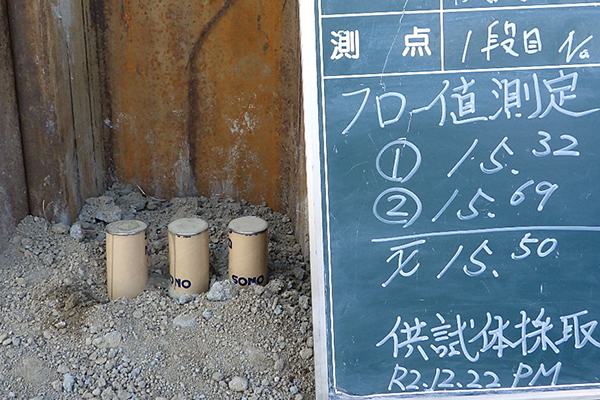 測点 1段目 No
フロー値測定
① 15.32
② 15.69
x̄ 15.50
供試体採取
R2.12.22 PM
SONO
SONO